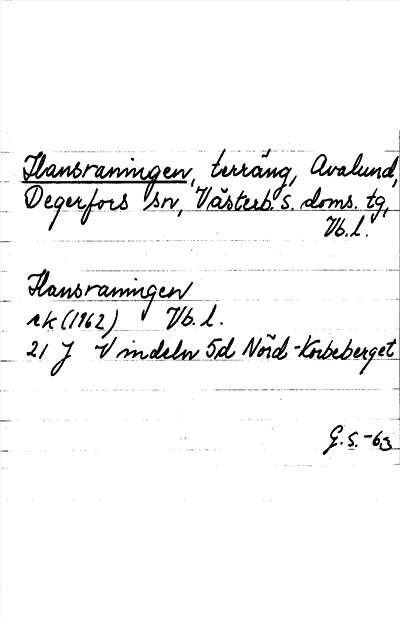 Hansraningen, terräng, Avalund,
Degerfors sn, Västerb. s. doms. tg,
Vb. l.
Hansraningen
rk (1962) Vb. l.
21 J Vindeln 5d Nörd-Korbeberget
G. S. -63